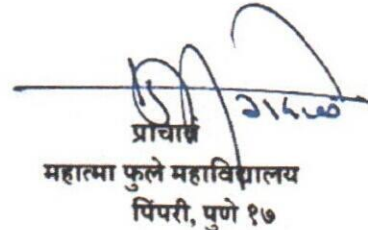 प्राचार्य
महात्मा फुले महाविद्यालय
पिंपरी, पुणे १७